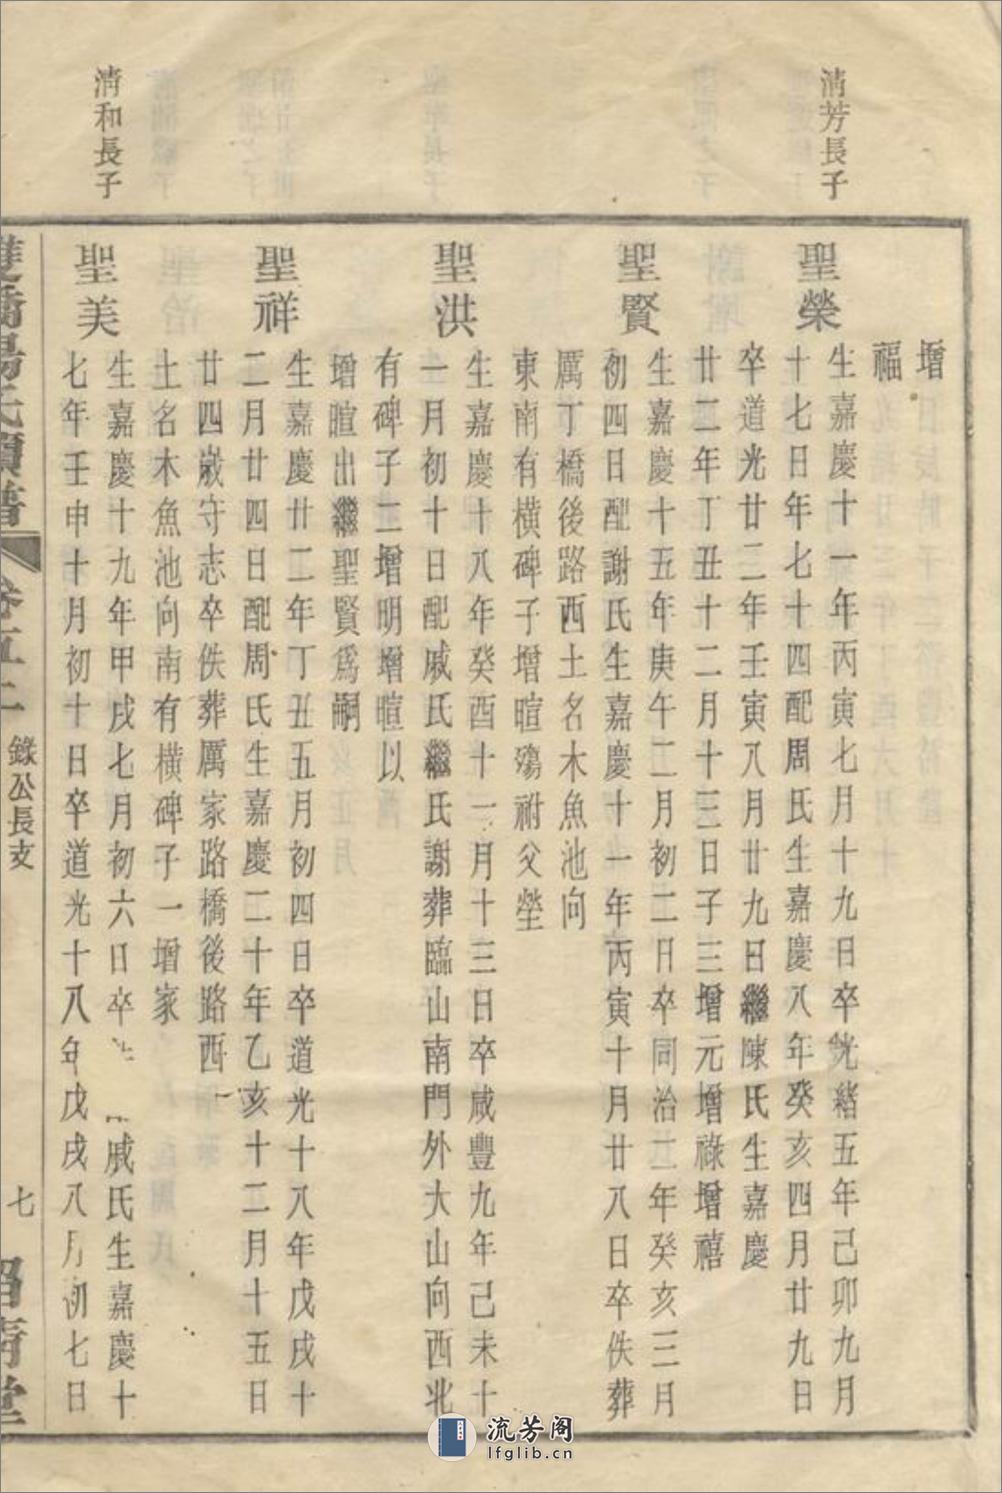 清芳長子
清和長子
增
福
聖榮
生嘉慶十一年丙寅七月十九日卒光緒五年己卯九月
十七日年七十四配周氏生嘉慶八年癸亥四月廿九日
卒道光廿二年壬寅八月廿九日繼陳氏生嘉慶
廿二年丁丑十二月十三日子三增元增祿增禧
聖賢
生嘉慶十五年庚午二月初二日卒同治二年癸亥三月
初四日配謝氏生嘉慶十一年丙寅十月廿八日卒佚葬
厲丁橋後路西土名木魚池向
東南有橫碑子增暄殤祔父塋
聖洪
生嘉慶十八年癸酉十一月十三日卒咸豐九年己未十
一月初十日配戚氏繼氏謝葬臨山南門外大山向西北
有碑子二增明增暄以
增暄出繼聖賢為嗣
聖祥
生嘉慶廿二年丁丑五月初四日卒道光十八年戊戌十
二月廿四日配周氏生嘉慶二十年乙亥十二月十五日
廿四歲守志卒佚葬厲家路橋後路西
土名木魚池向南有橫碑子一增家
聖美
生嘉慶十九年甲戌七月初六日卒 戚氏生嘉慶十
七年壬申十月初十日卒道光十八年戊戌八月初七日
卷五二 錄公長支 七
流芳阁
lfglib.cn